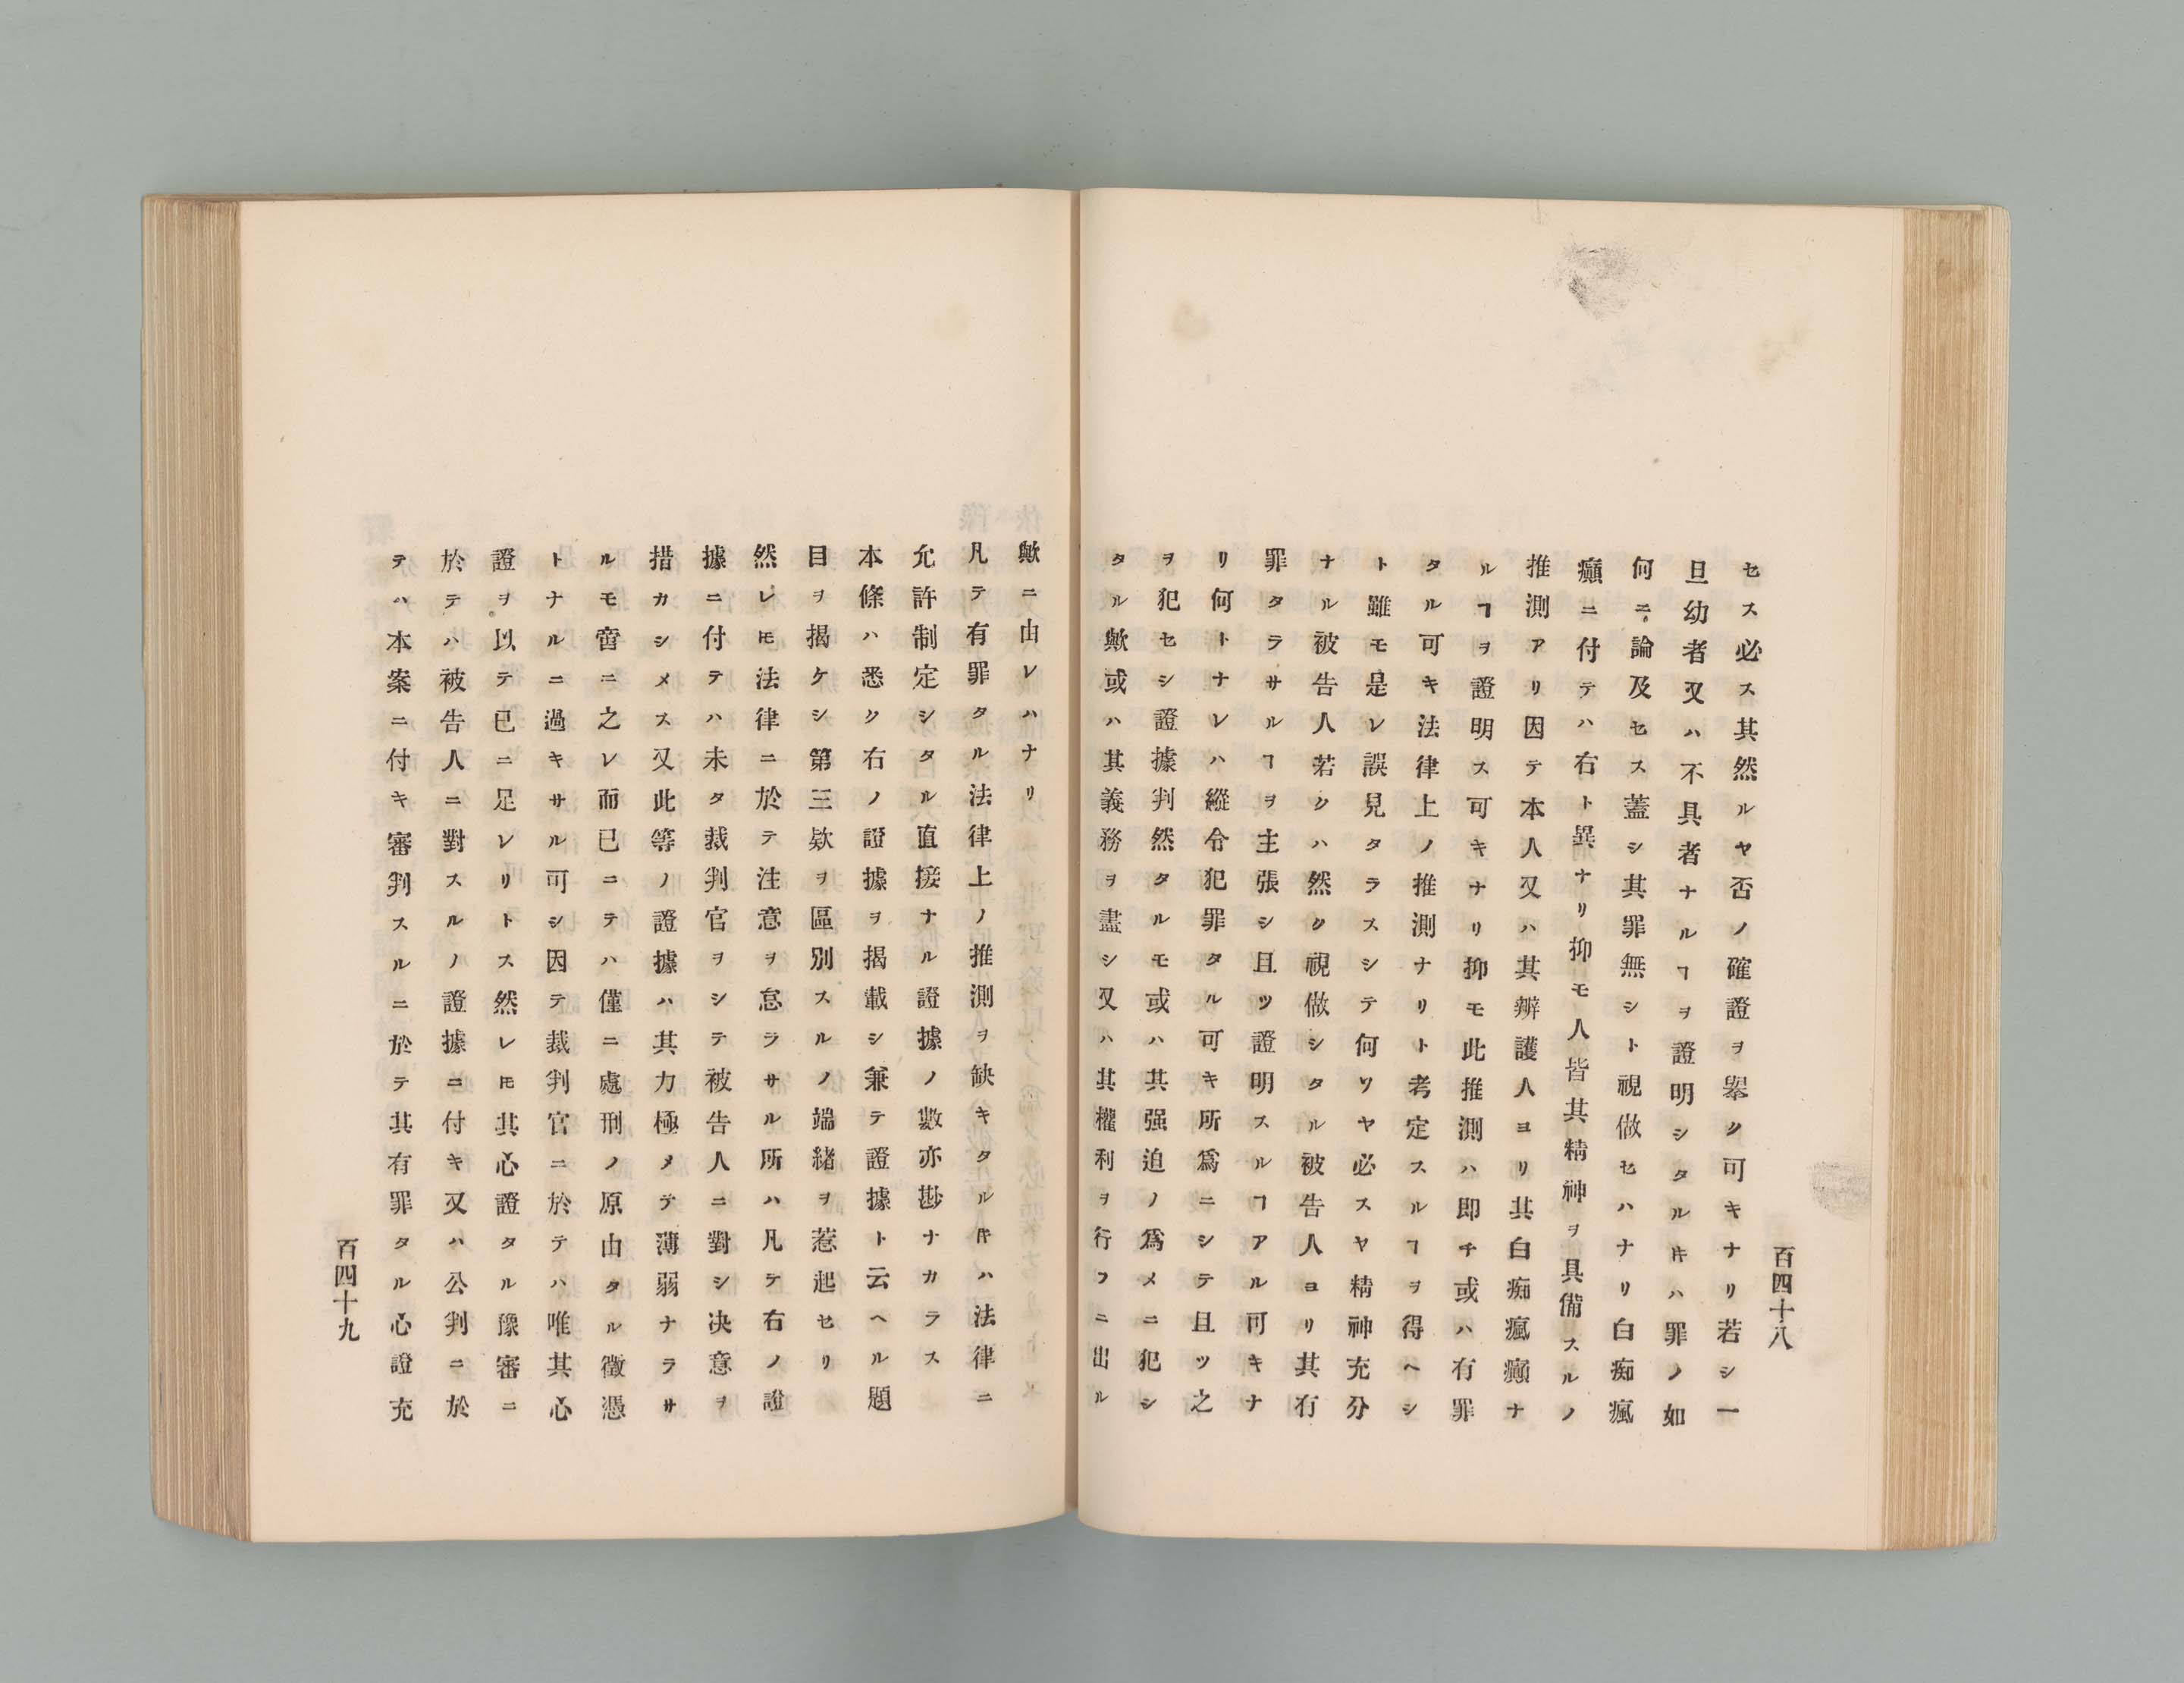 百四十八
セス必ス其然ルヤ否ノ確證ヲ擧ク可キナリ若シ一
旦幼者又ハ不具者ナルヿヲ證明シタルㇵ罪ノ如
何ニ論及セス蓋シ其罪無シト視做セハナリ白痴瘋
癲ニ付テハ右ト異ナリ抑モ人皆其精神ヲ具備スルノ
推測アリ因テ本人又ハ其辨護人ヨリ其白痴瘋癲ナ
ルヿヲ證明ス可キナリ抑モ此推測ハ即チ或ハ有罪
タル可キ法律上ノ推測ナリト考定スルヿヲ得ヘシ
ト雖モ是レ誤見タラスシテ何ソヤ必スヤ精神充分
ナル被告人若クハ然ク視做シタル被告人ヨリ其有
罪タラサルヿヲ主張シ且ツ證明スルヿアル可キナ
リ何トナレハ縱令犯罪タル可キ所爲ニシテ且ツ之
ヲ犯セシ證據判然タルモ或ハ其强迫ノ爲メニ犯シ
タル歟或ハ其義務ヲ盡シ又ハ其權利ヲ行フニ出ル
歟ニ由レハナリ
凡テ有罪タル法律上ノ推測ヲ缺キタルㇵ法律ニ
允許制定シタル直接ナル證據ノ數亦尠ナカラス
本條ハ悉ク右ノ證據ヲ揭載シ兼テ證據ト云ヘル題
目ヲ揭ケシ第三欵ヲ區別スルノ端緒ヲ惹起セリ
然レ𪜈法律ニ於テ注意ヲ怠ラサル所ハ凡テ右ノ證
據ニ付テハ未タ裁判官ヲシテ被告人ニ對シ决意ヲ
措カシメス又此等ノ證據ハ其力極メテ薄弱ナラサ
ルモ啻ニ之レ而已ニテハ僅ニ處刑ノ原由タル徵憑
トナルニ過キサル可シ因テ裁判官ニ於テハ唯其心
證ヲ以テ已ニ足レリトス然レ𪜈其心證タル豫審ニ
於テハ被告人ニ對スルノ證據ニ付キ又ハ公判ニ於
テハ本案ニ付キ審判スルニ於テ其有罪タル心證充
百四十九